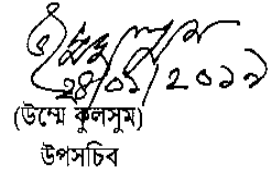 ২৪/০১/২০১৯
(উম্মে কুলসুম)
উপসচিব